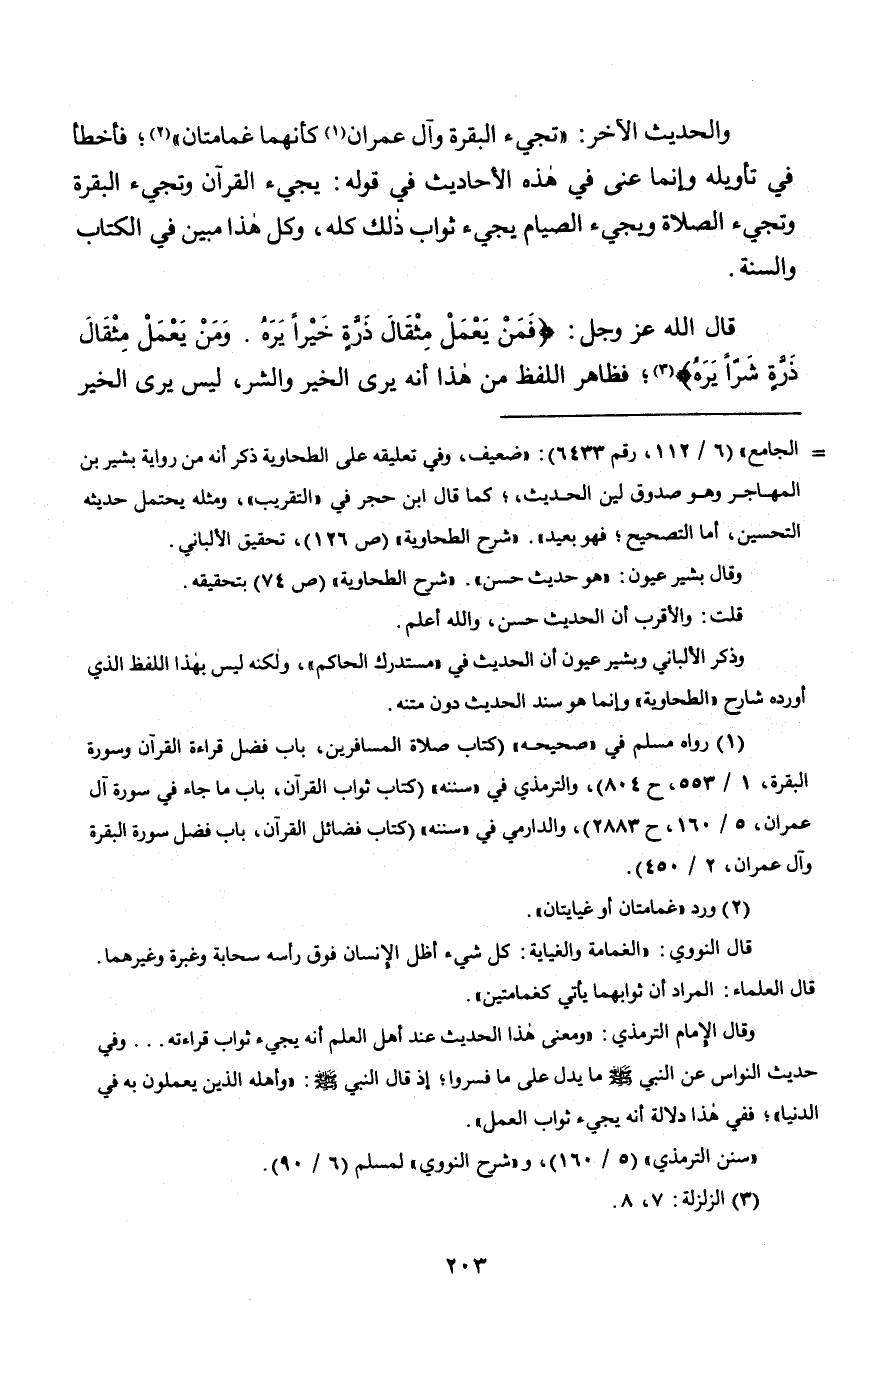 والحديث الآخر: «تجيء البقرة وآل عمران(١) كأنهما غمامتان»(٢)؛ فأخطأ
في تأويله وإنما عنى في هٰذه الأحاديث في قوله: يجيء القرآن وتجيء البقرة
وتجيء الصلاة ويجيء الصيام يجيء ثواب ذٰلك كله، وكل هٰذا مبين في الكتاب
والسنة.
قال الله عز وجل: ﴿فَمَنْ يَعْمَلْ مِثْقَالَ ذَرَّةٍ خَيْراً يَرَهُ . وَمَنْ يَعْمَلْ مِثْقَالَ
ذَرَّةٍ شَرّاً يَرَهُ﴾(٣)؛ فظاهر اللفظ من هٰذا أنه يرى الخير والشر، ليس يرى الخير
= الجامع» (٦ / ١١٢، رقم ٦٤٣٣): «ضعيف، وفي تعليقه على الطحاوية ذكر أنه من رواية بشير بن
المهاجر وهو صدوق لين الحديث،؛ كما قال ابن حجر في «التقريب»، ومثله يحتمل حديثه
التحسين، أما التصحيح؛ فهو بعيد». «شرح الطحاوية» (ص ١٢٦)، تحقيق الألباني.
وقال بشير عيون: «هو حديث حسن». «شرح الطحاوية» (ص ٧٤) بتحقيقه.
قلت: والأقرب أن الحديث حسن، والله أعلم.
وذكر الألباني وبشير عيون أن الحديث في «مستدرك الحاكم»، ولٰكنه ليس بهٰذا اللفظ الذي
أورده شارح «الطحاوية» وإنما هو سند الحديث دون متنه.
(١) رواه مسلم في «صحيحه» (كتاب صلاة المسافرين، باب فضل قراءة القرآن وسورة
البقرة، ١ / ٥٥٣، ح ٨٠٤)، والترمذي في «سننه» (كتاب ثواب القرآن، باب ما جاء في سورة آل
عمران، ٥ / ١٦٠، ح ٢٨٨٣)، والدارمي في «سننه» (كتاب فضائل القرآن، باب فضل سورة البقرة
وآل عمران، ٢ / ٤٥٠).
(٢) ورد «غمامتان أو غيايتان».
قال النووي: «الغمامة والغياية: كل شيء أظل الإنسان فوق رأسه سحابة وغبرة وغيرهما.
قال العلماء: المراد أن ثوابهما يأتي كغمامتين».
وقال الإمام الترمذي: «ومعنى هٰذا الحديث عند أهل العلم أنه يجيء ثواب قراءته... وفي
حديث النواس عن النبي ﷺ ما يدل على ما فسروا؛ إذ قال النبي ﷺ: «وأهله الذين يعملون به في
الدنيا»؛ ففي هٰذا دلالة أنه يجيء ثواب العمل».
«سنن الترمذي» (٥ / ١٦٠)، و«شرح النووي» لمسلم (٦ / ٩٠).
(٣) الزلزلة: ٧، ٨.
٢٠٣